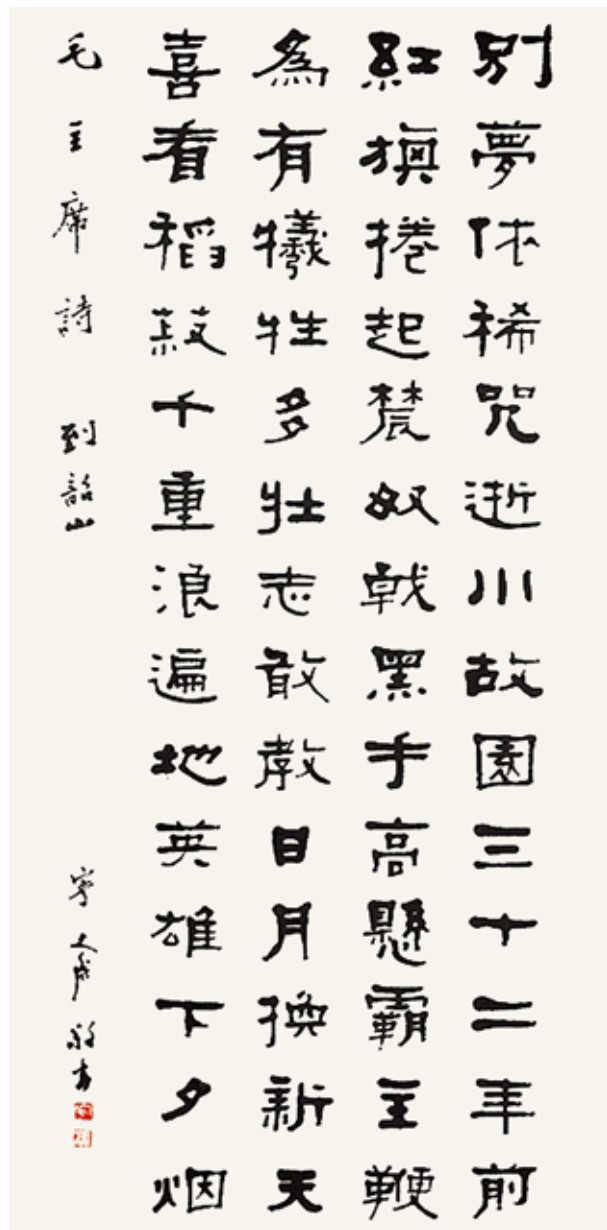 别夢依稀咒逝川故園三十二年前
紅旗捲起農奴戟黑手高懸霸主鞭
為有犧牲多壯志敢教日月換新天
喜看稻菽千重浪遍地英雄下夕烟
毛主席詩 到韶山